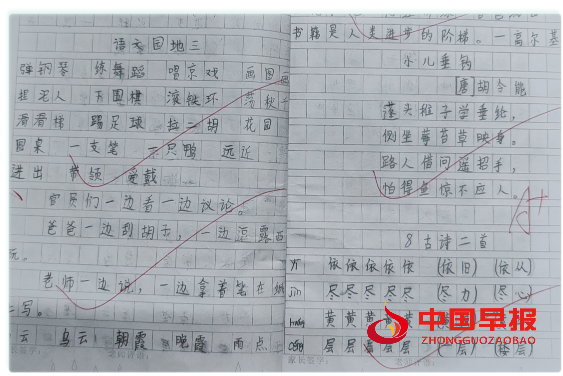 语文园地三
弹钢琴 练舞蹈 唱京戏 画国画
捏泥人 下围棋 滚铁环 荡秋千
滑滑梯 踢足球 拉二胡 花园
圆桌 一支笔 一只鸭 远近
进出 戴领 爱戴
官员们一边看一边议论。
爸爸一边刮胡子,一边逗露西
玩。
老师一边说,一边拿着笔在
写。
云 乌云 朝霞 晚霞 雨点
家长签字: 老师评语:
书籍是人类进步的阶梯。—高尔基
小儿垂钓
唐胡令能
蓬头稚子学垂纶,
侧坐莓苔草映身。
路人借问遥招手,
怕得鱼惊不应人。
A+
8 古诗二首
yī 依依依依依 (依旧) (依从)
jìn 尽尽尽尽尽 (尽力) (尽心)
huáng 黄黄黄黄
céng 层层层层层 (层) (楼层)
家长签字:
中国早报
ZHONGGUOZAOBAO